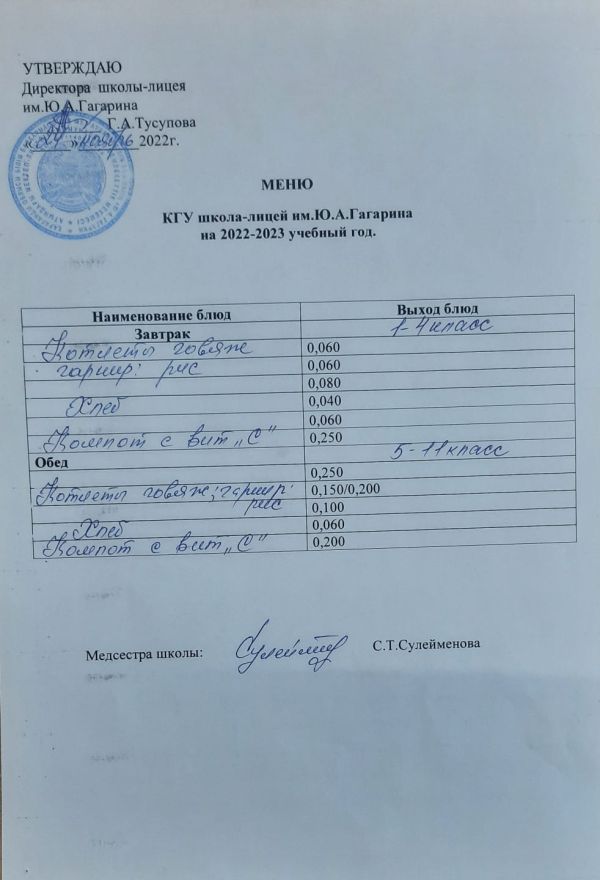 УТВЕРЖДАЮ
Директора школы-лицея
им.Ю.А.Гагарина
Г.А.Тусупова
«24» ноябрь 2022г.
МЕНЮ
КГУ школа-лицей им.Ю.А.Гагарина
на 2022-2023 учебный год.
Наименование блюд Выход блюд
Завтрак 1-4 класс
Котлеты говяж 0,060
гарнир: рис 0,060
0,080
Хлеб 0,040
0,060
Компот с вит „С" 0,250
Обед 5-11 класс
0,250
Котлеты говяж; гарнир: 0,150/0,200
рис 0,100
Хлеб 0,060
Компот с вит „С" 0,200
Медсестра школы: С.Т.Сулейменова